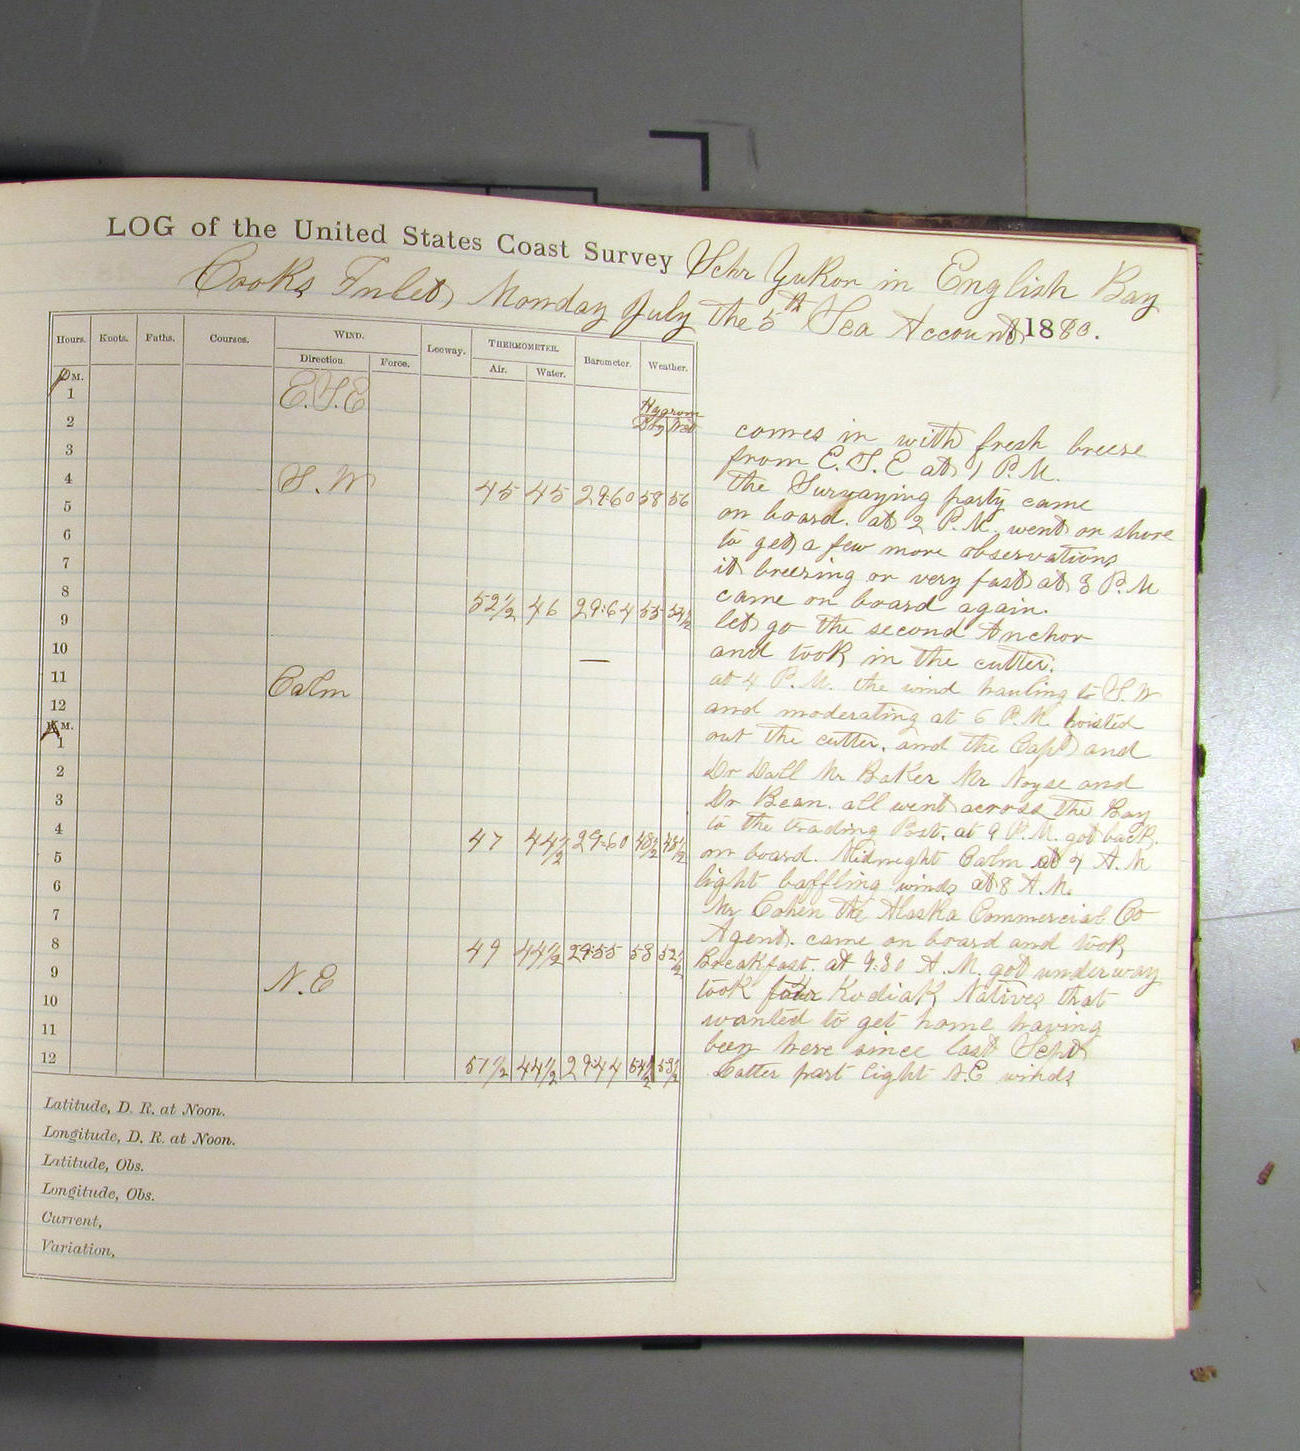 LOG of the United States Coast Survey Schr Yukon in English Bay
Cooks Inlet, Monday July the 5th Sea Account, 1880.
Hours. Knots. Faths. Courses. WIND. Leeway. THERMOMETER. Barometer. Weather.
Direction. Force. Air. Water.
P M.
1 E.S.E
2 Dry Wet
3
4 S.W 45 45 29.60 58 56
5
6
7
8 52 1/2 46 29.64 55 52 1/2
9
10 —
11 Calm
12
A M.
1
2
3
4 47 44 1/2 29.60 48 1/2 48 1/2
5
6
7
8 49 44 1/2 29.55 58 52 1/2
9 N.E
10
11
12 51 1/2 44 1/2 29.44 54 1/2 53 1/2
Latitude, D. R. at Noon.
Longitude, D. R. at Noon.
Latitude, Obs.
Longitude, Obs.
Current,
Variation,
comes in with fresh breeze
from E.S.E at 1 P.M.
the Survaying party came
on board. at 2 P.M. went on shore
to get a few more observations
it breezing on very fast at 3 P.M
came on board again.
let go the second Anchor
and took in the cutter.
at 4 P.M. the wind hauling to S.W
and moderating at 6 P.M. hoisted
out the cutter. and the Capt and
Dr Dall Mr Baker Mr Noyse and
Dr Bean. all went across the Bay
to the trading Post. at 9 P.M. got back.
on board. Midnight Calm at 7 A.M
light baffling winds at 8 A.M.
Mr Cohen the Alaska Commercial Co
Agent. came on board and took
Breakfast. at 9:30 A.M. got underway
took four Kodiak Natives that
wanted to get home having
been here since last Sept
Latter part light N.E winds